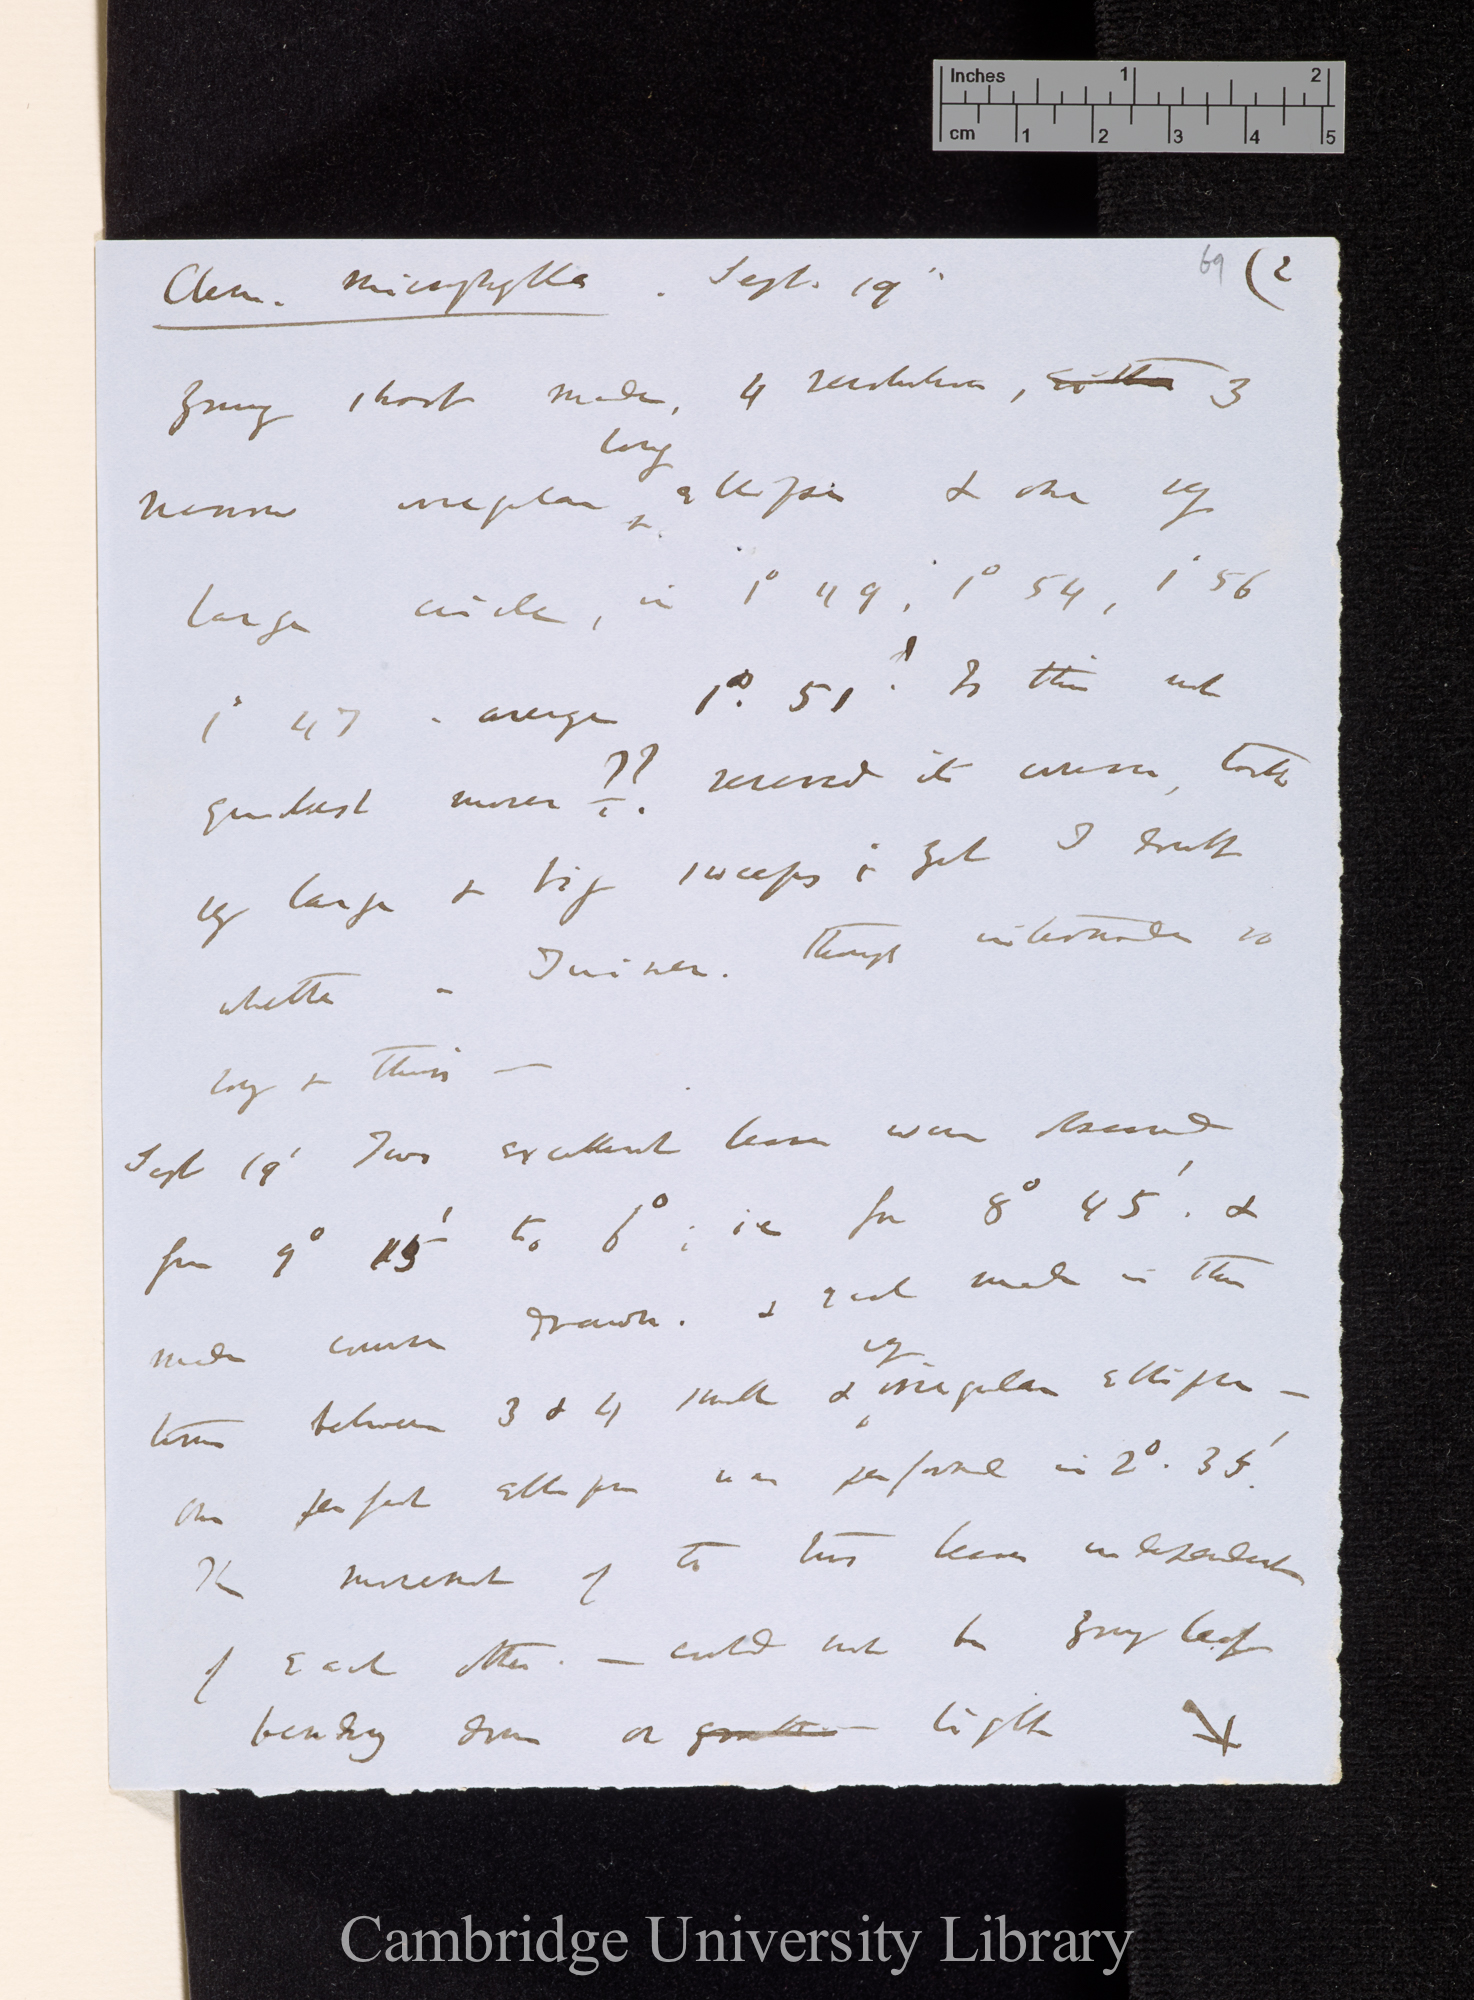 Inches 1 2
cm 1 2 3 4 5
Clem. microphylla. Sept. 19"
69 (2
Young shoot made, 4 revolutions, 3
narrow irregular & long ellipses & one
large circle, in 1° 49', 1° 54, 1° 56
1° 47 - average 1° 51'! Is this not
quickest mover ?? reversed its course, both
large & big sweeps; yet I doubt
whether a Twiner. though internodes so
long & thin —
Sept 19' Two excellent leaves were observed
from 9° 15' to 6°; ie for 8° 45'. &
made course drawn. & each made in this
time between 3 & 4 small & irregular ellipses —
one perfect ellipse was performed in 2°. 35'.
The movement of the two leaves independent
of each other. — could not be young leaf
bending down or light
Cambridge University Library